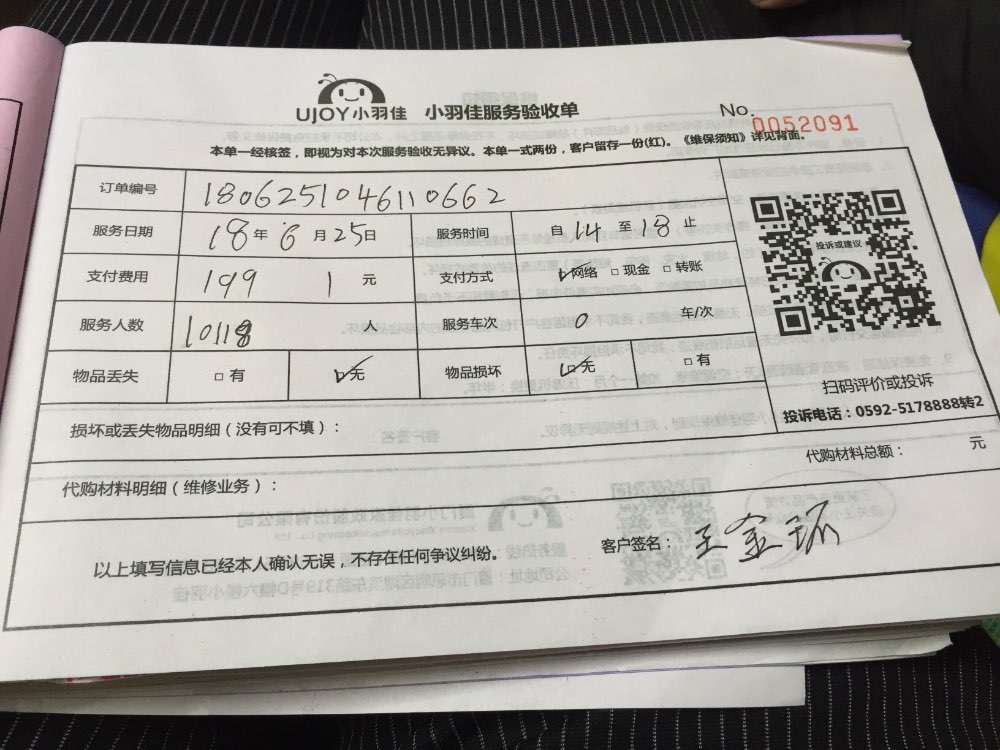 UJOY小羽佳 小羽佳服务验收单 No.0052091
本单一经核签，即视为对本次服务验收无异议。本单一式两份，客户留存一份(红)。《维保须知》详见背面。
订单编号 1806251046110662
服务日期 18年6月25日 服务时间 自14至18止
支付费用 199 1 元 支付方式 ☑网络 □现金 □转账
服务人数 10118 人 服务车次 0 车/次
物品丢失 □有 ☑无 物品损坏 ☑无 □有
投诉或建议
扫码评价或投诉
投诉电话：0592-5178888转2
损坏或丢失物品明细（没有可不填）：
代购材料明细（维修业务）： 代购材料总额： 元
以上填写信息已经本人确认无误，不存在任何争议纠纷。 客户签名：王金环